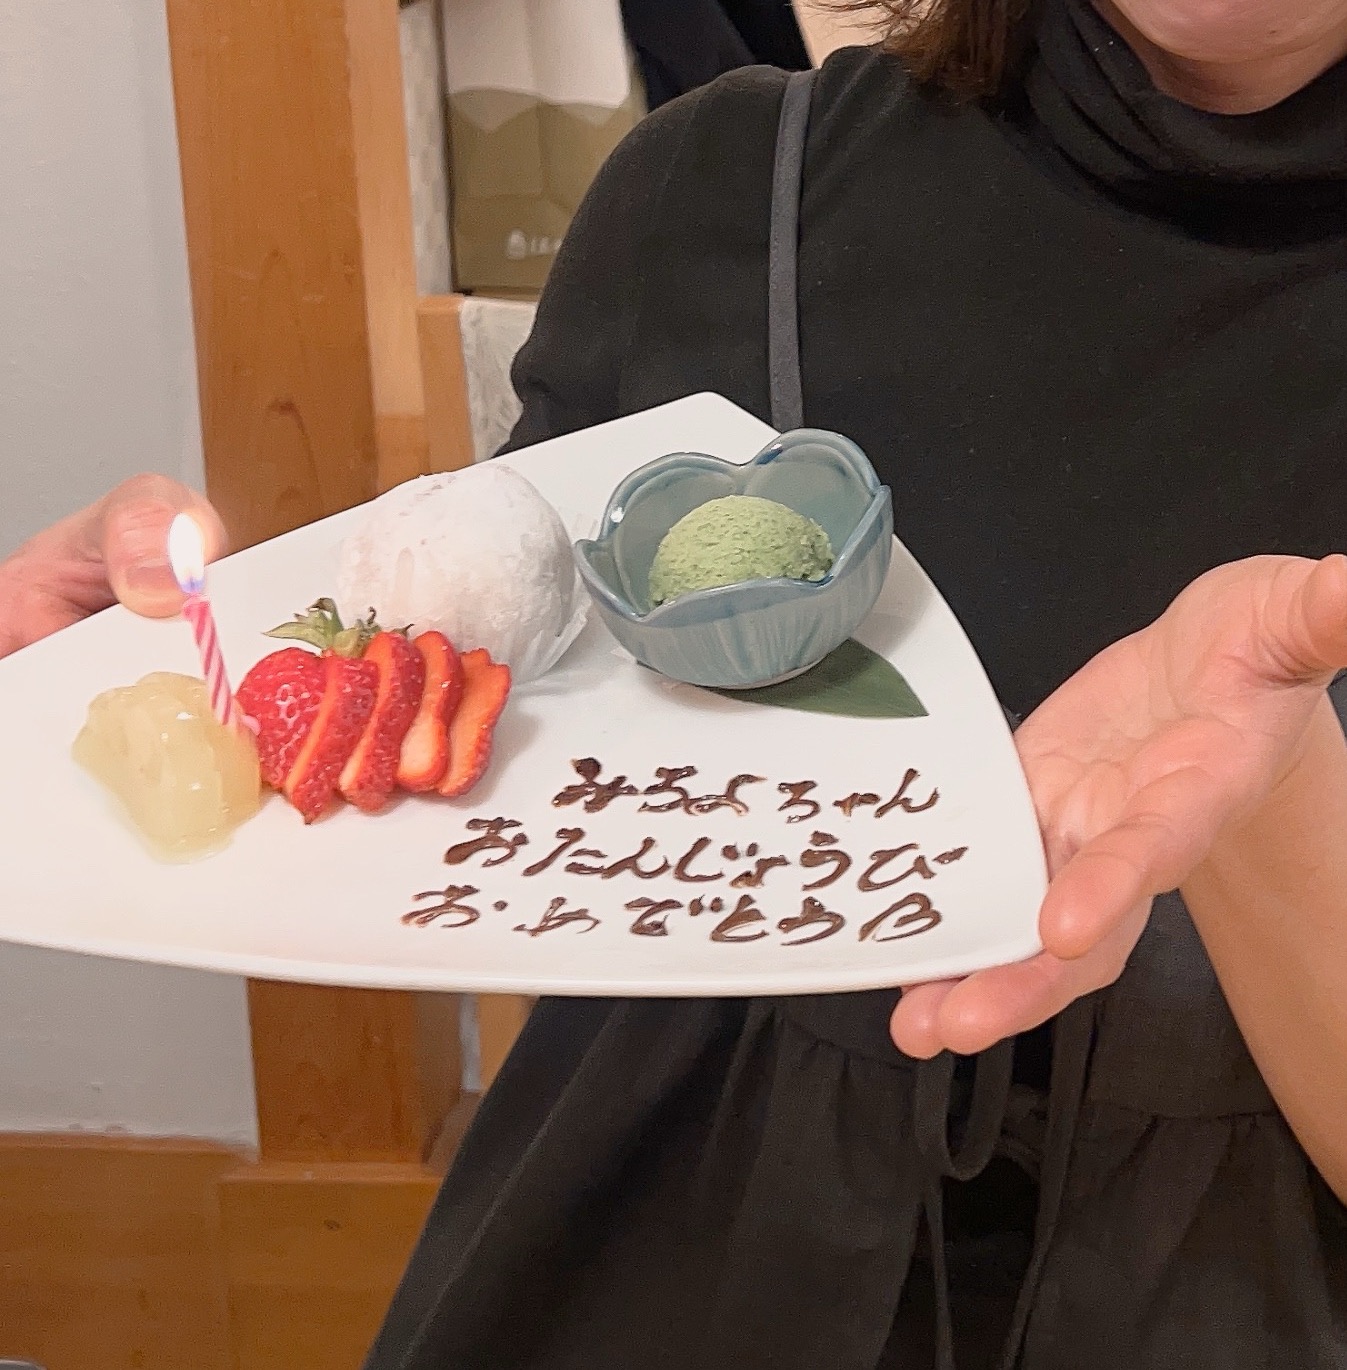 みちよちゃん
おたんじょうび
おめでとう♡